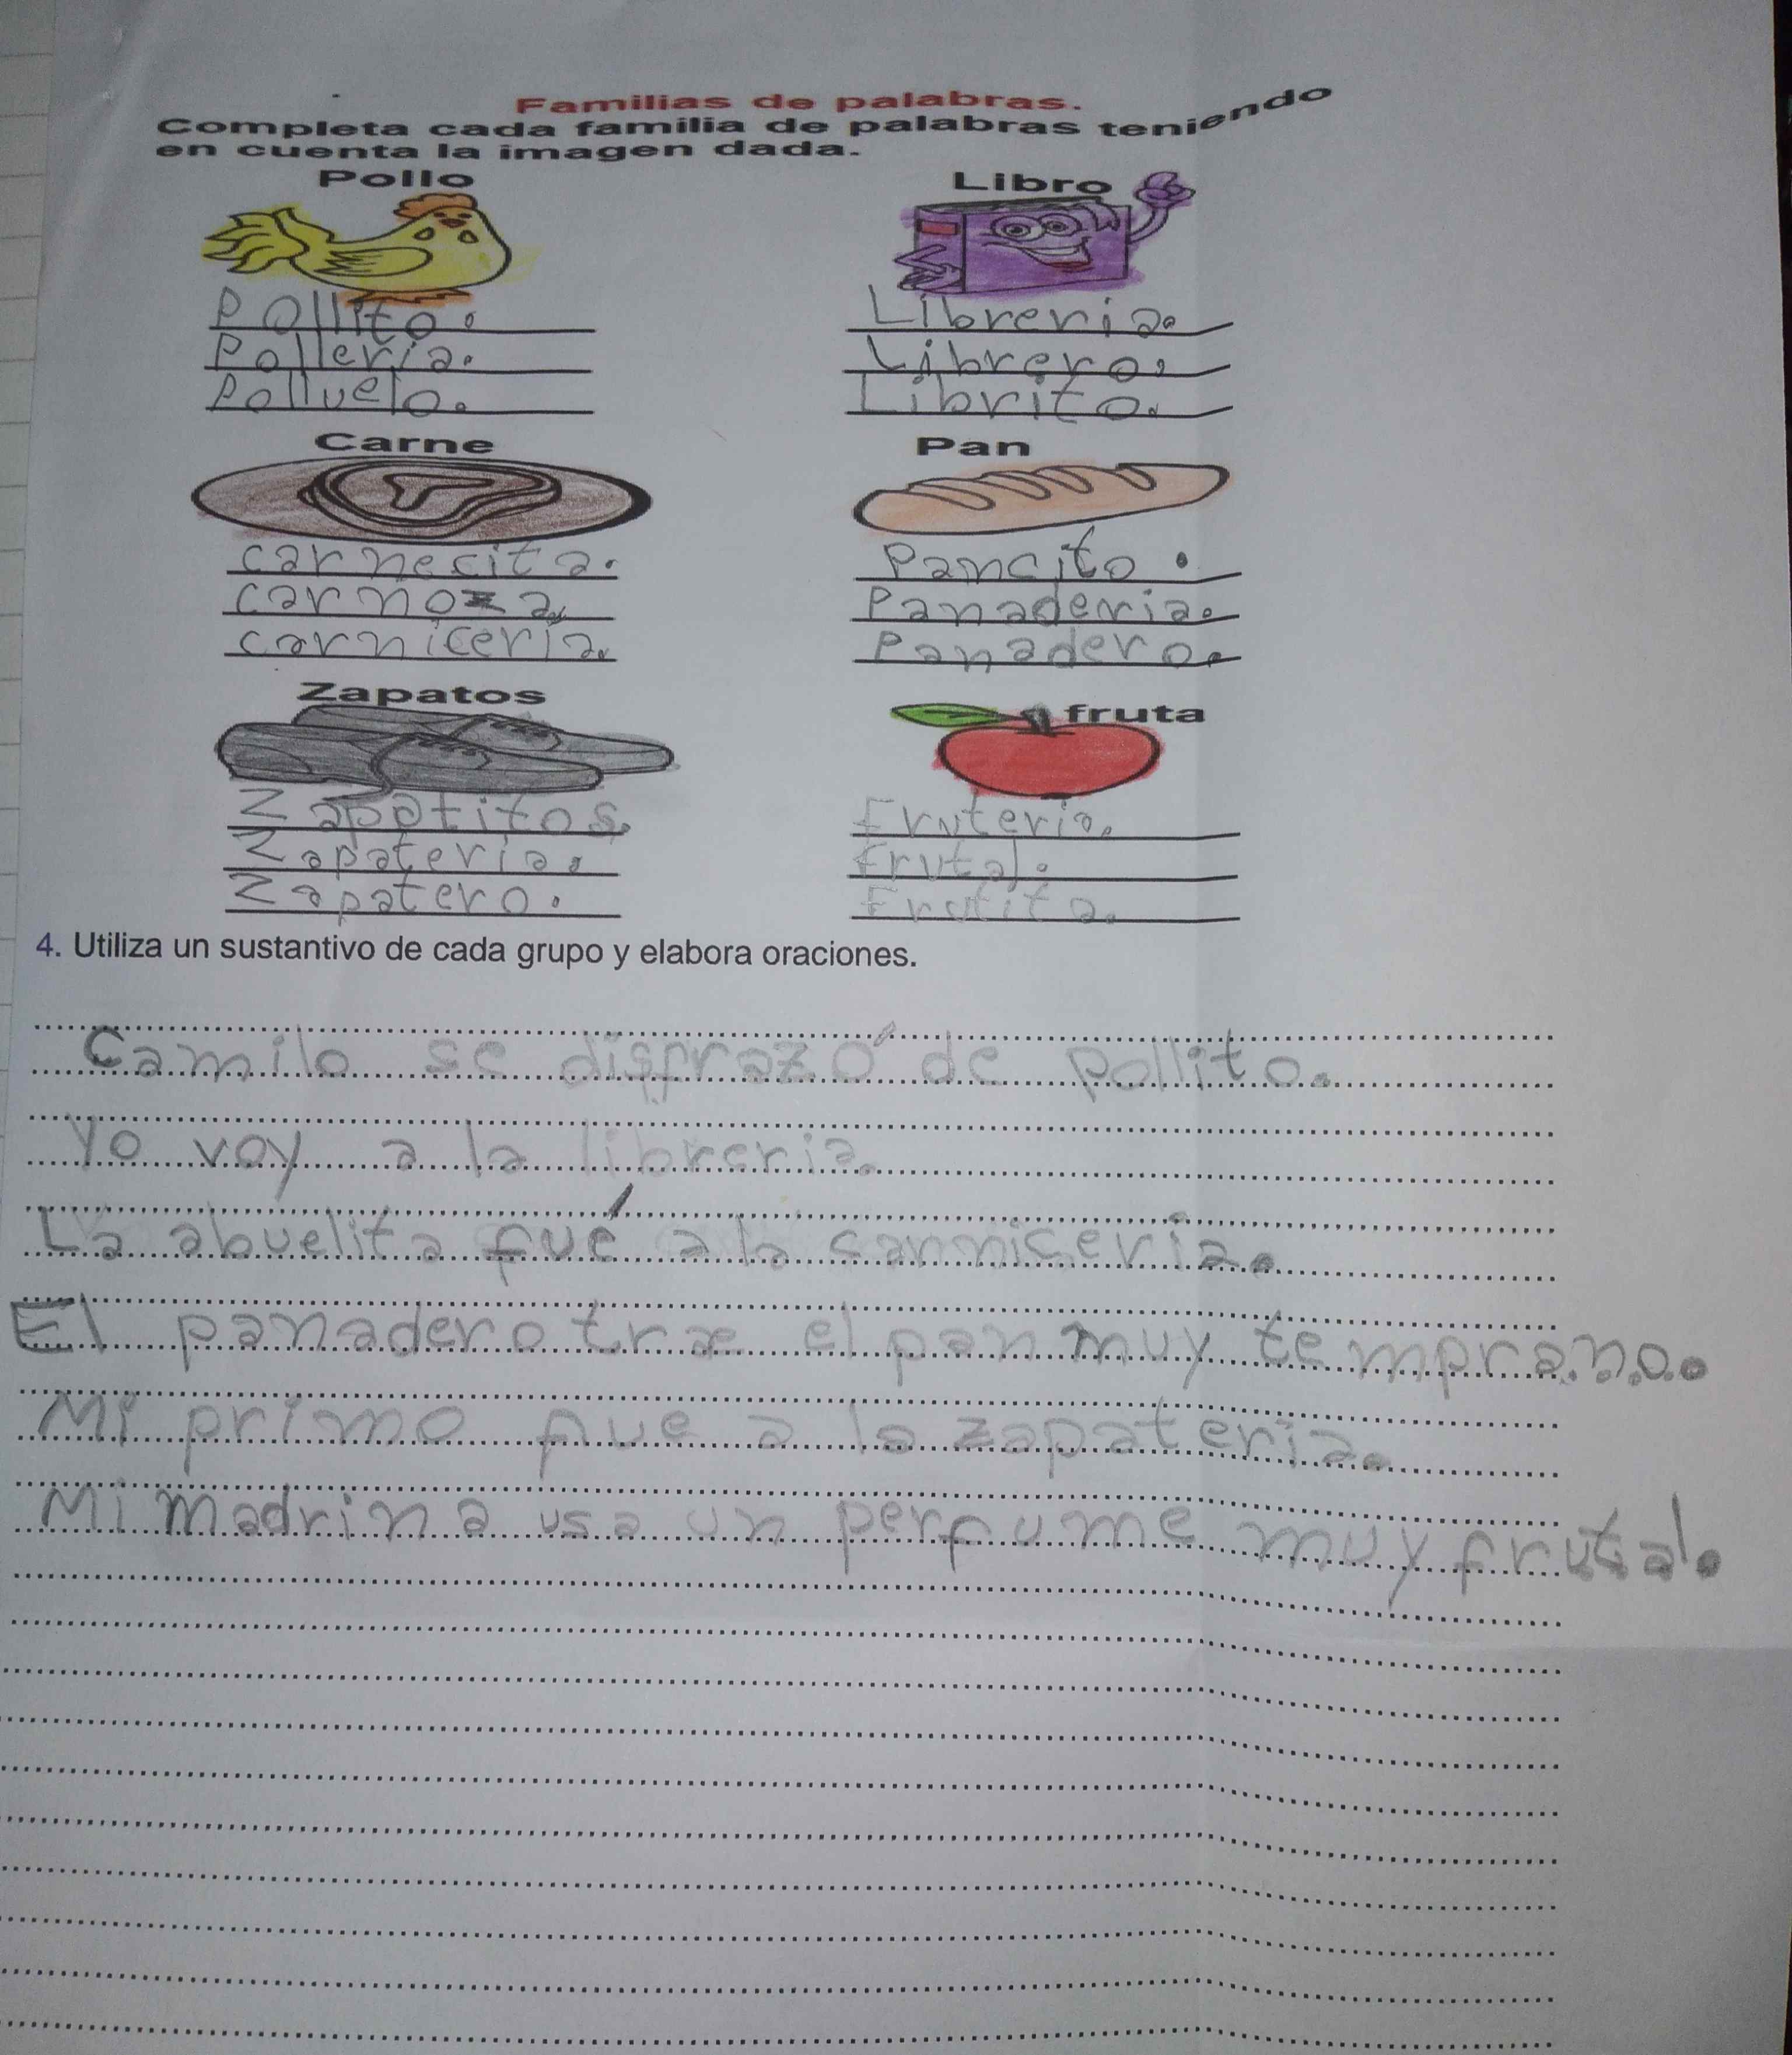 Familias de palabras.
Completa cada familia de palabras teniendo
en cuenta la imagen dada.
Pollo
Pollito.
Polleria.
Polluelo.
Libro
Libreria.
Librero.
Librito.
Carne
carnecita.
carnoza.
carniceria.
Pan
Pancito.
Panaderia.
Panadero.
Zapatos
Zapatitos.
Zapateria.
Zapatero.
fruta
Fruteria.
Frutal.
Frutita.
4. Utiliza un sustantivo de cada grupo y elabora oraciones.
Camilo se disfrazó de pollito.
Yo voy a la libreria.
La abuelita fué a la carniceria.
El panadero trae el pan muy temprano.
Mi primo fue a la zapateria.
Mi madrina usa un perfume muy frutal.